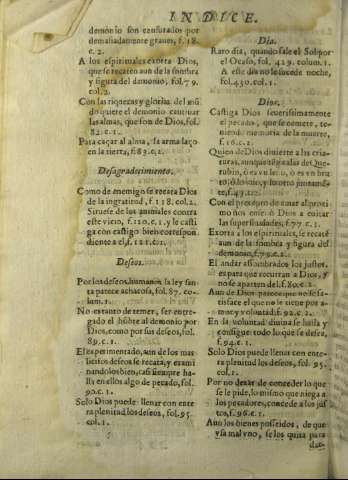 INDICE.
demonio son causados por
demasiadamente graues, f.18.
c.2.
A los espirituales exorta Dios,
que se recatẽ aun de la sombra
y figura del demonio, fol.79.
col.2.
Con las riquezas y gloria del mũ
do quiere el demonio cautiuar
las almas, que son de Dios, fol.
82.c.1.
Para caçar al alma, se arma lazo
en la tierra, f.83.c.2.
Desagradecimiento.
Como de enemigo se recata Dios
de la ingratitud, f.118.col.2.
Siruese de los animales contra
este vicio, f.120.c.1. y le casti
ga con castigo bien correspon
diente a el, f.121.c.1.
Deseos.
Por los deseos humanos la ley san
ta parece achacosa, fol.87. co-
lum.1.
No es tanto de temer, ser entre-
gado el hõbre al demonio por
Dios, como por sus deseos, fol.
89.c.1.
El experimentado, aun de los mas
licitos deseos se recata, y exami
nandolos bien, casi siempre ha-
lla en ellos algo de pecado, fol.
90.c.1.
Solo Dios puede llenar con ente
ra plenitud los deseos, fol.95.
col.1.
Dia.
Raro dia, quando sale el Sol por
el Ocaso, fol.429. colum.1.
A este dia no sucede noche,
fol.430.col.1.
Dios.
Castiga Dios seuerissimamente
el pecado, que se comete, te-
niendo memoria de la muerte,
f.16.c.2.
Quien de Dios diuierte a las cria-
turas, aunque tẽga alas de Que-
rubin, ò
f.49.
Con el precepto de amar al proxi
mo nos enseñò Dios a euitar
las superfluidades, f.77.c.1.
Exorta a los espirituales, se recatẽ
aun de la sombra y figura del
demonio, f.79.c.2.
El andar assombrados los justos,
es para que recurran a Dios, y
no se aparten del, f.80.c.2.
Aun de Dios parece que no se sa-
tisface el que no le tiene por a-
mor, y voluntad, f.92.c.2.
En la voluntad diuina se halla y
consigue todo lo que se desea,
f.94.c.1.
Solo Dios puede llenar con ente-
ra plenitud los deseos, fol.95.
col.1.
Por no dexar de conceder lo que
se le pide, lo mismo que niega a
los pecadores, concede a los jus
tos, f.96.c.1.
Aun los bienes posseidos, de que
vsa mal vno, se los quita para